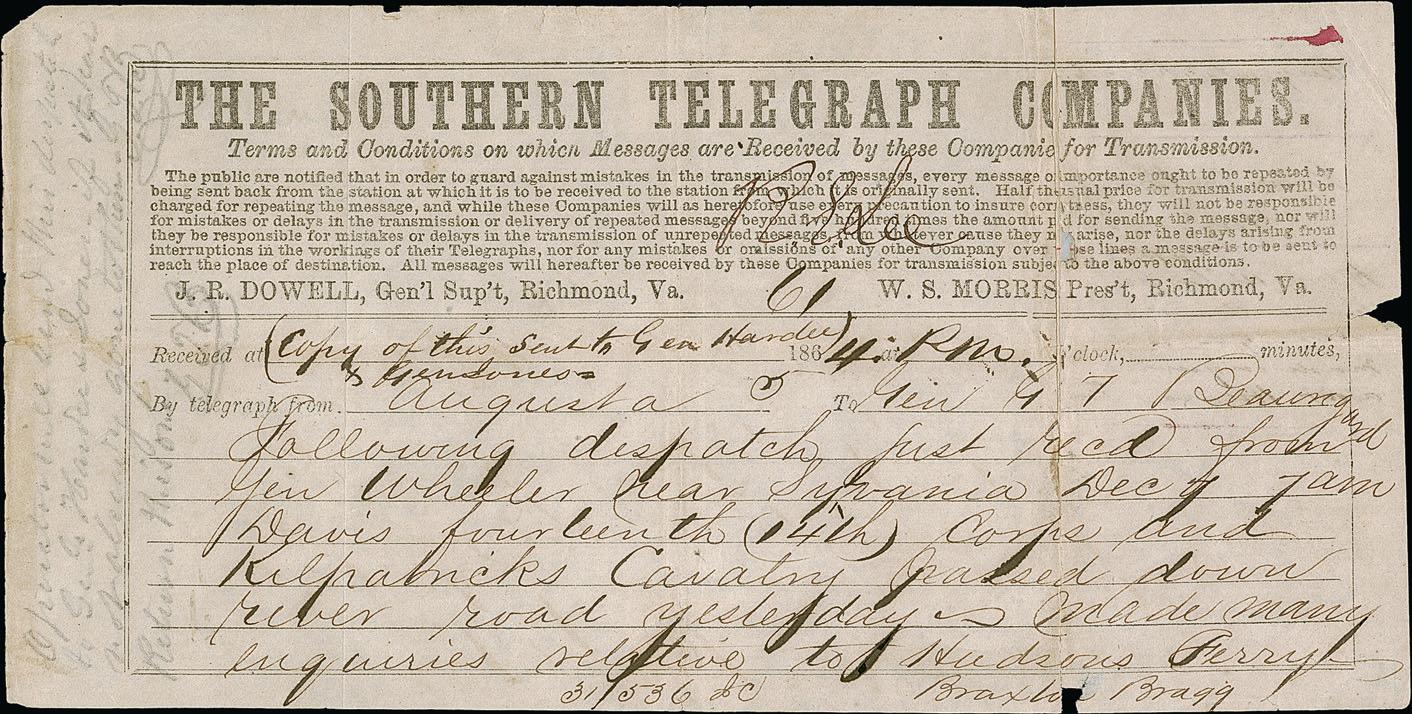 THE SOUTHERN TELEGRAPH COMPANIES.
Terms and Conditions on which Messages are Received by these Companie for Transmission.
The public are notified that in order to guard against mistakes in the transmission of messages, every message of importance ought to be repeated by
being sent back from the station at which it is to be received to the station from which it is originally sent. Half the usual price for transmission will be
charged for repeating the message, and while these Companies will as heretofore use every precaution to insure correctness, they will not be responsible
for mistakes or delays in the transmission or delivery of repeated messages beyond five hundred times the amount paid for sending the message, nor will
they be responsible for mistakes or delays in the transmission of unrepeated messages, from whatever cause they may arise, nor the delays arising from
interruptions in the workings of their Telegraphs, nor for any mistakes or omissions of any other Company over whose lines a message is to be sent to
reach the place of destination. All messages will hereafter be received by these Companies for transmission subject to the above conditions.
J. R. DOWELL, Gen'l Sup't, Richmond, Va. 61 W. S. MORRIS Pres't, Richmond, Va.
Received at (Copy of this sent to Gen Hardee) 186 4 at P.M. o'clock, minutes,
& Gen Jones
By telegraph from Augusta 5 To Gen G T Beauregard
Following dispatch just recd from
Gen Wheeler near Sylvania Dec 4 7am
Davis fourteenth (14th) Corps and
Kilpatricks Cavalry passed down
river road yesterday made many
enquiries relative to Hudsons Ferry
31/536 DC Braxton Bragg
Return this only